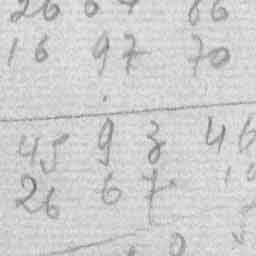 26 67 66
16 97 70
45 93 46
26 67